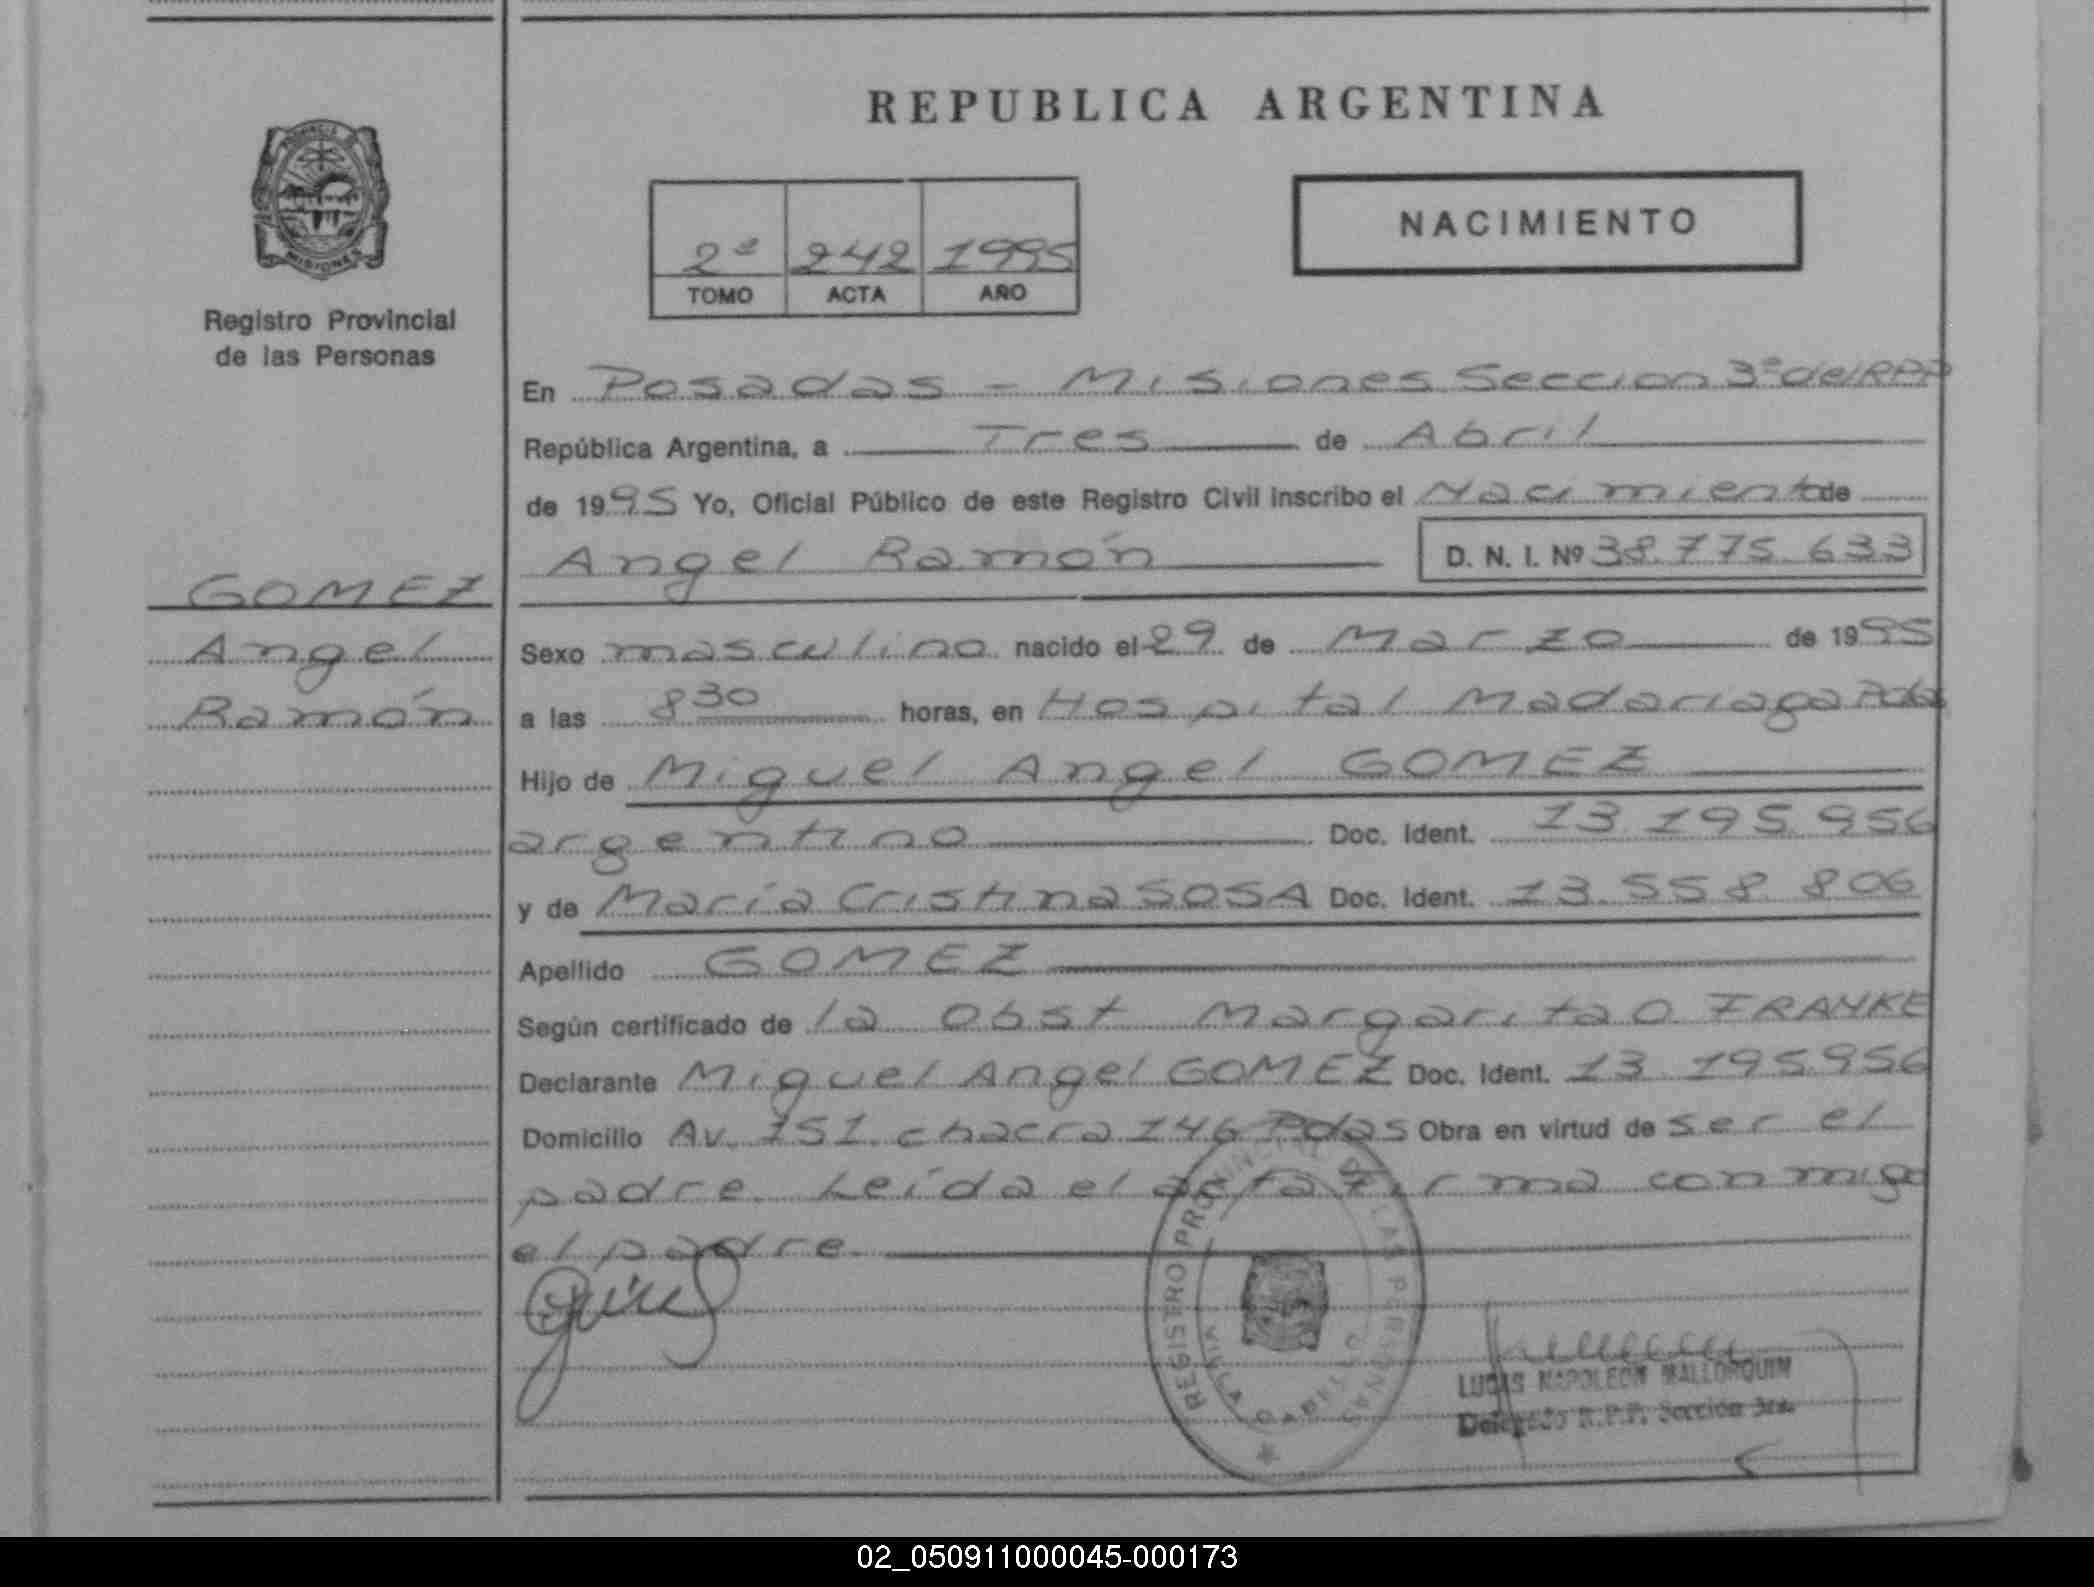 REPUBLICA ARGENTINA
2º 242 1995
TOMO ACTA AÑO
NACIMIENTO
MISIONES
Registro Provincial
de las Personas
En Posadas - Misiones Seccion 3º del RPP
República Argentina, a Tres de Abril
de 1995 Yo, Oficial Público de este Registro Civil inscribo el Nacimiento de
Angel Ramón D. N. I. Nº 38.775.633
GOMEZ
Angel
Ramón
Sexo masculino nacido el 29 de Marzo de 1995
a las 8 30 horas, en Hospital Madariaga Pdas
Hijo de Miguel Angel GOMEZ
argentino Doc. Ident. 13.195.956
y de María Cristina SOSA Doc. Ident. 13.558.806
Apellido GOMEZ
Según certificado de la Obst Margarita O. FRANKE
Declarante Miguel Angel GOMEZ Doc. Ident. 13.195.956
Domicilio Av. 151 chacra 146 Pdas Obra en virtud de ser el
padre. Leída el acta firma conmigo
el padre.
REGISTRO PROVINCIAL DE LAS PERSONAS
LUCAS NAPOLEON MALLORQUIN
Delegado R.P.P. Sección 3ra.
02_050911000045-000173